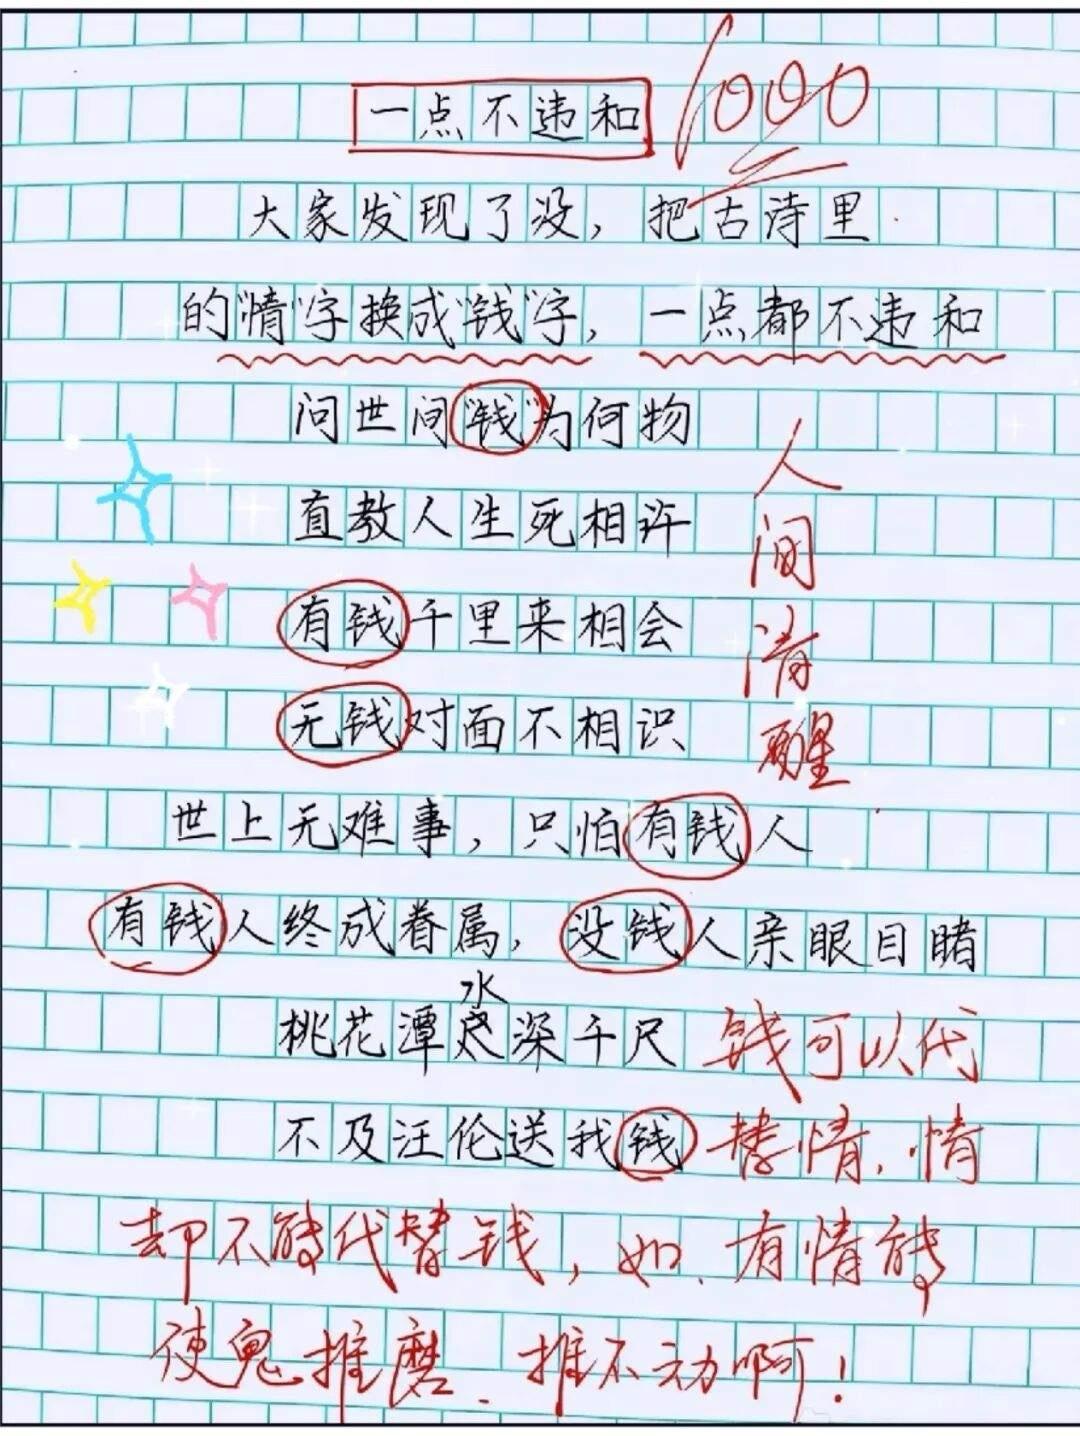 一点不违和 1000
大家发现了没，把古诗里
的“情”字换成“钱”字，一点都不违和
问世间“钱”为何物
直教人生死相许
有钱千里来相会
无钱对面不相识
人间清醒
世上无难事，只怕有钱人
有钱人终成眷属，没钱人亲眼目睹
桃花潭水深千尺
不及汪伦送我钱
钱可以代
替情，情
却不能代替钱，如、有情能
使鬼推磨、推不动啊！